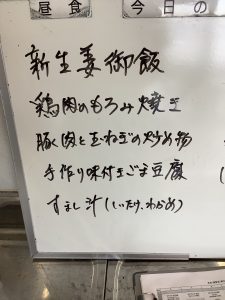 昼食
今日の
新生姜御飯
鶏肉のもろみ焼き
豚肉と玉ねぎの炒め物
手作り味付きごま豆腐
すまし汁(しいたけ、わかめ)